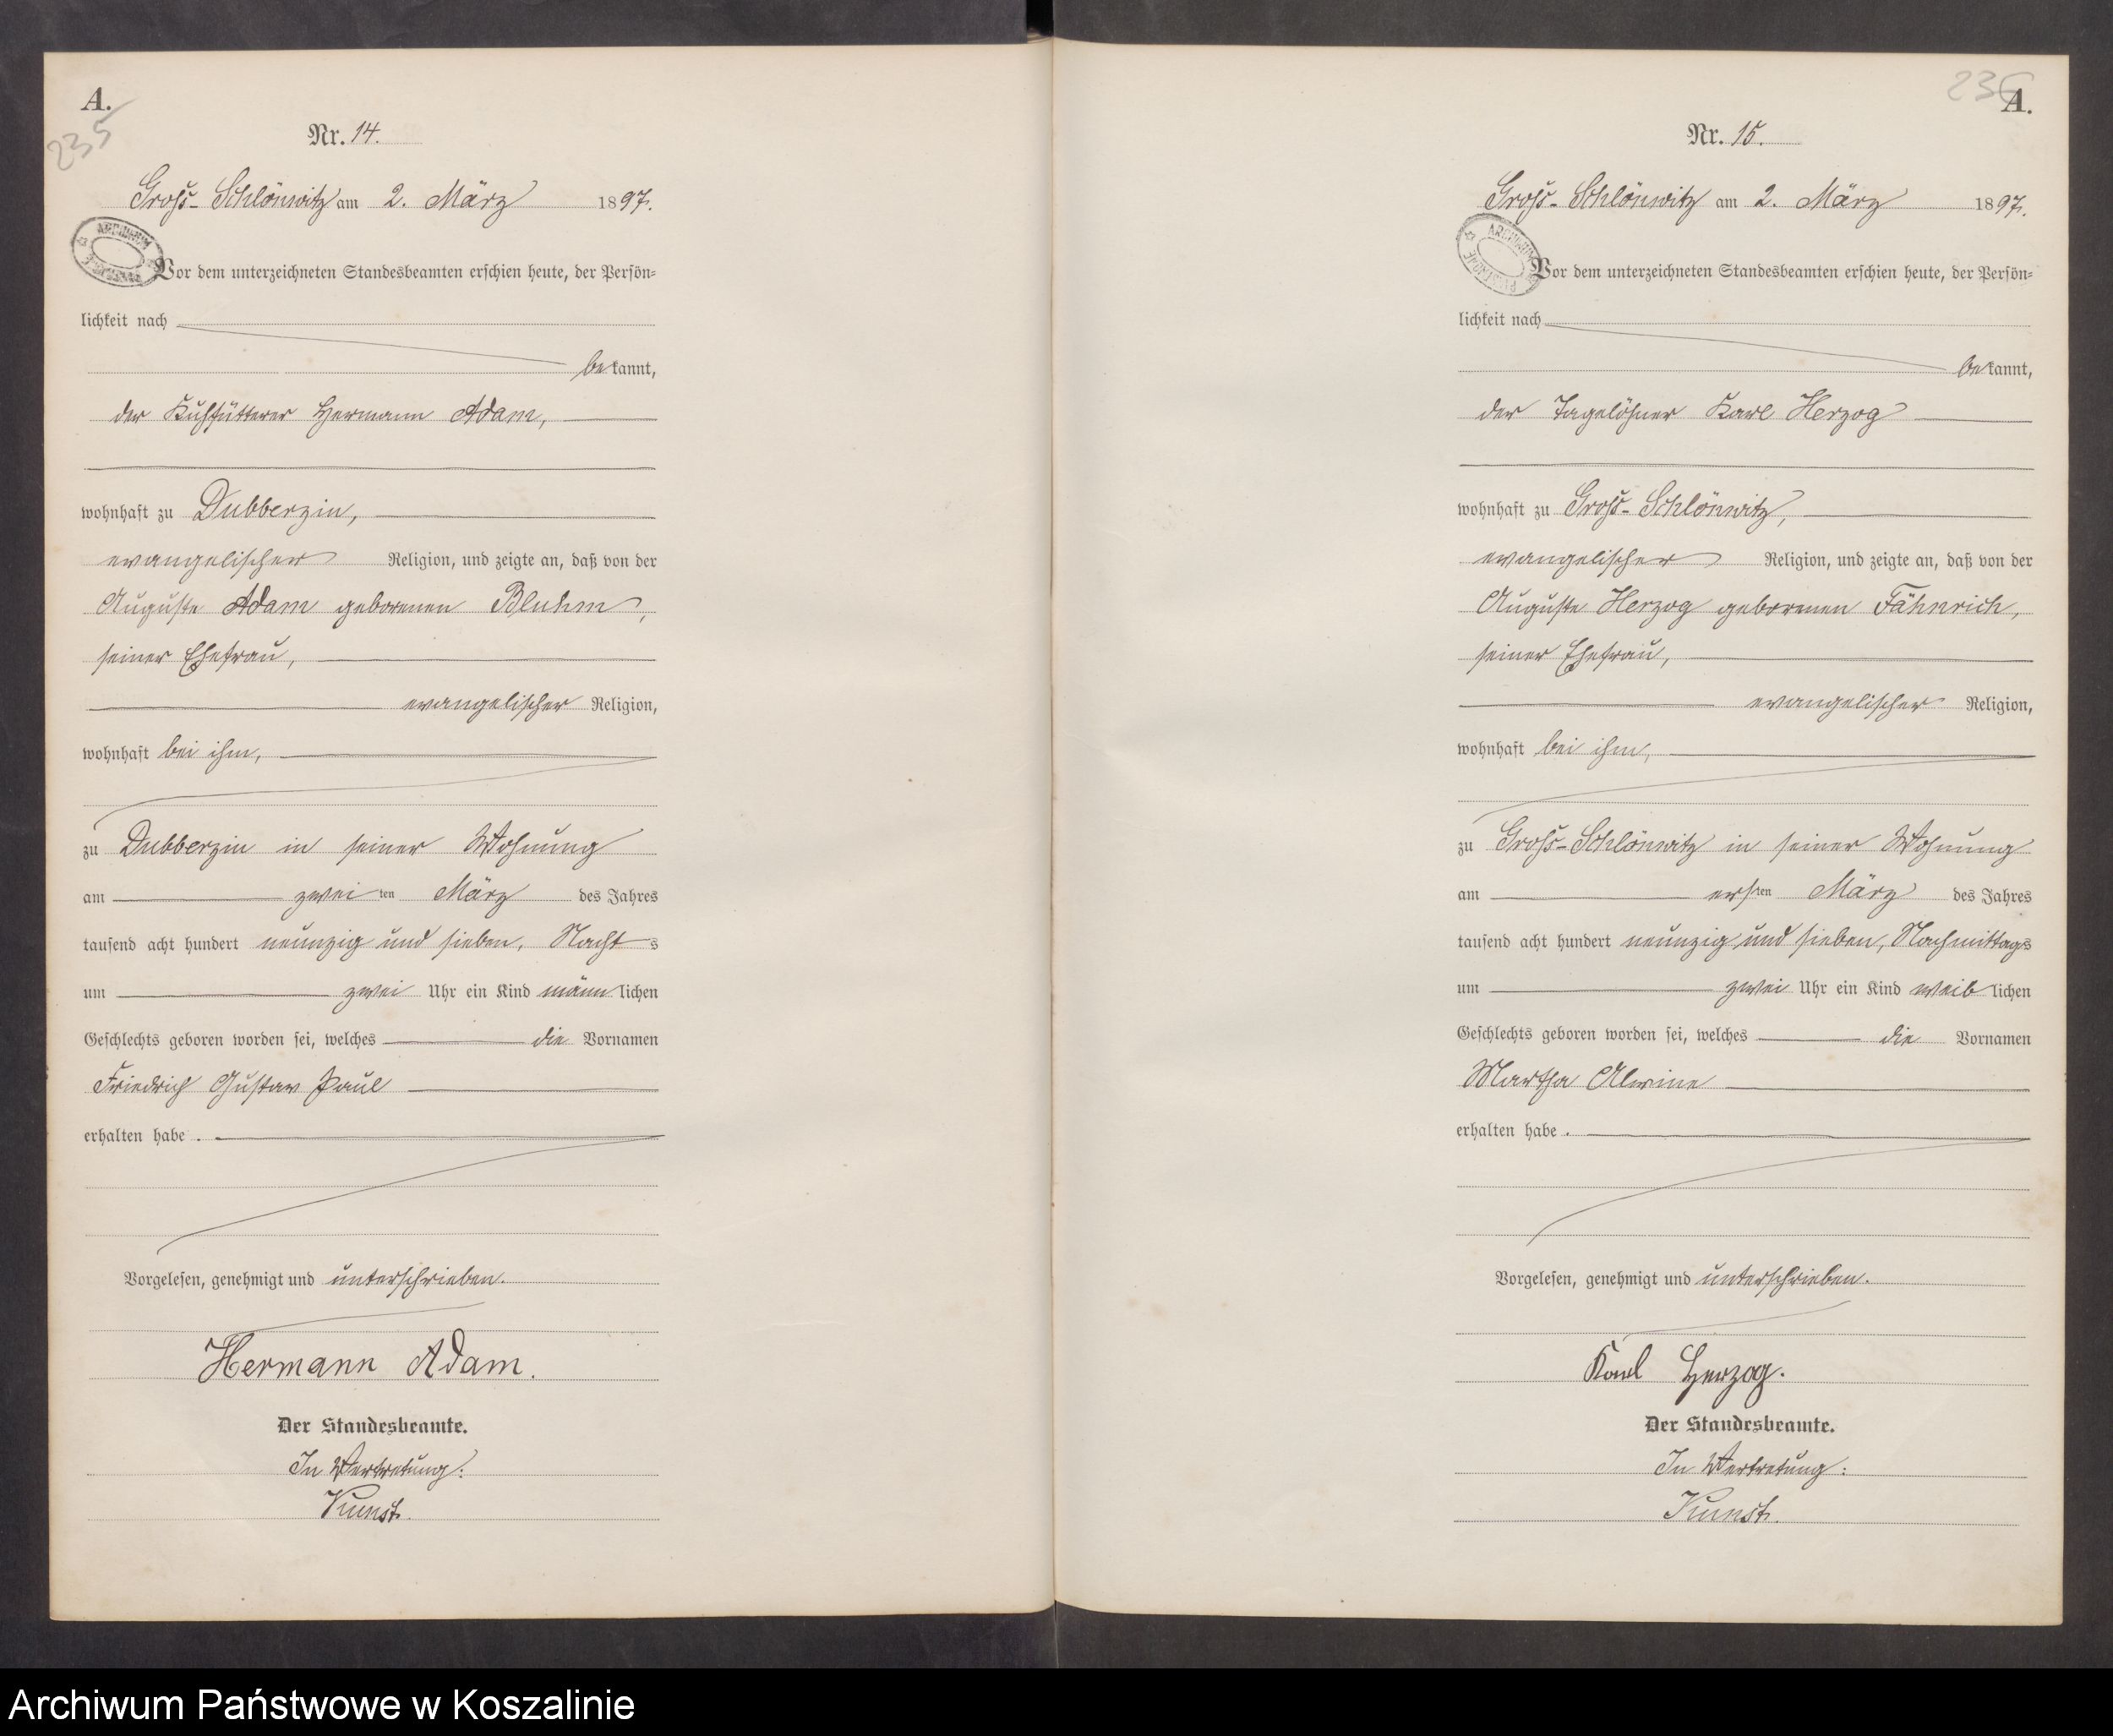 A.
235
Nr. 14.
Groß-Schlönwitz am 2. März 1897.
Vor dem unterzeichneten Standesbeamten erschien heute, der Persön=
lichkeit nach
bekannt,
der Kuhfütterer Hermann Adam,
wohnhaft zu Dubberzin,
evangelischer Religion, und zeigte an, daß von der
Auguste Adam geborenen Bluhm,
seiner Ehefrau,
evangelischer Religion,
wohnhaft bei ihm,
zu Dubberzin in seiner Wohnung
am zweiten März des Jahres
tausend acht hundert neunzig und sieben, Nachts
um zwei Uhr ein Kind männlichen
Geschlechts geboren worden sei, welches die Vornamen
Friedrich Gustav Paul
erhalten habe.
Vorgelesen, genehmigt und unterschrieben.
Hermann Adam.
Der Standesbeamte.
In Vertretung:
Kunst.
236
A.
Nr. 15.
Groß-Schlönwitz am 2. März 1897.
ARCHIWUM
Vor dem unterzeichneten Standesbeamten erschien heute, der Persön=
lichkeit nach
bekannt,
der Tagelöhner Karl Herzog
wohnhaft zu Groß-Schlönwitz,
evangelischer Religion, und zeigte an, daß von der
Auguste Herzog geborenen Fähnrich,
seiner Ehefrau,
evangelischer Religion,
wohnhaft bei ihm,
zu Groß-Schlönwitz in seiner Wohnung
am ersten März des Jahres
tausend acht hundert neunzig und sieben, Nachmittags
um zwei Uhr ein Kind weiblichen
Geschlechts geboren worden sei, welches die Vornamen
Martha Alwine
erhalten habe.
Vorgelesen, genehmigt und unterschrieben.
Karl Herzog.
Der Standesbeamte.
In Vertretung:
Kunst.
Archiwum Państwowe w Koszalinie